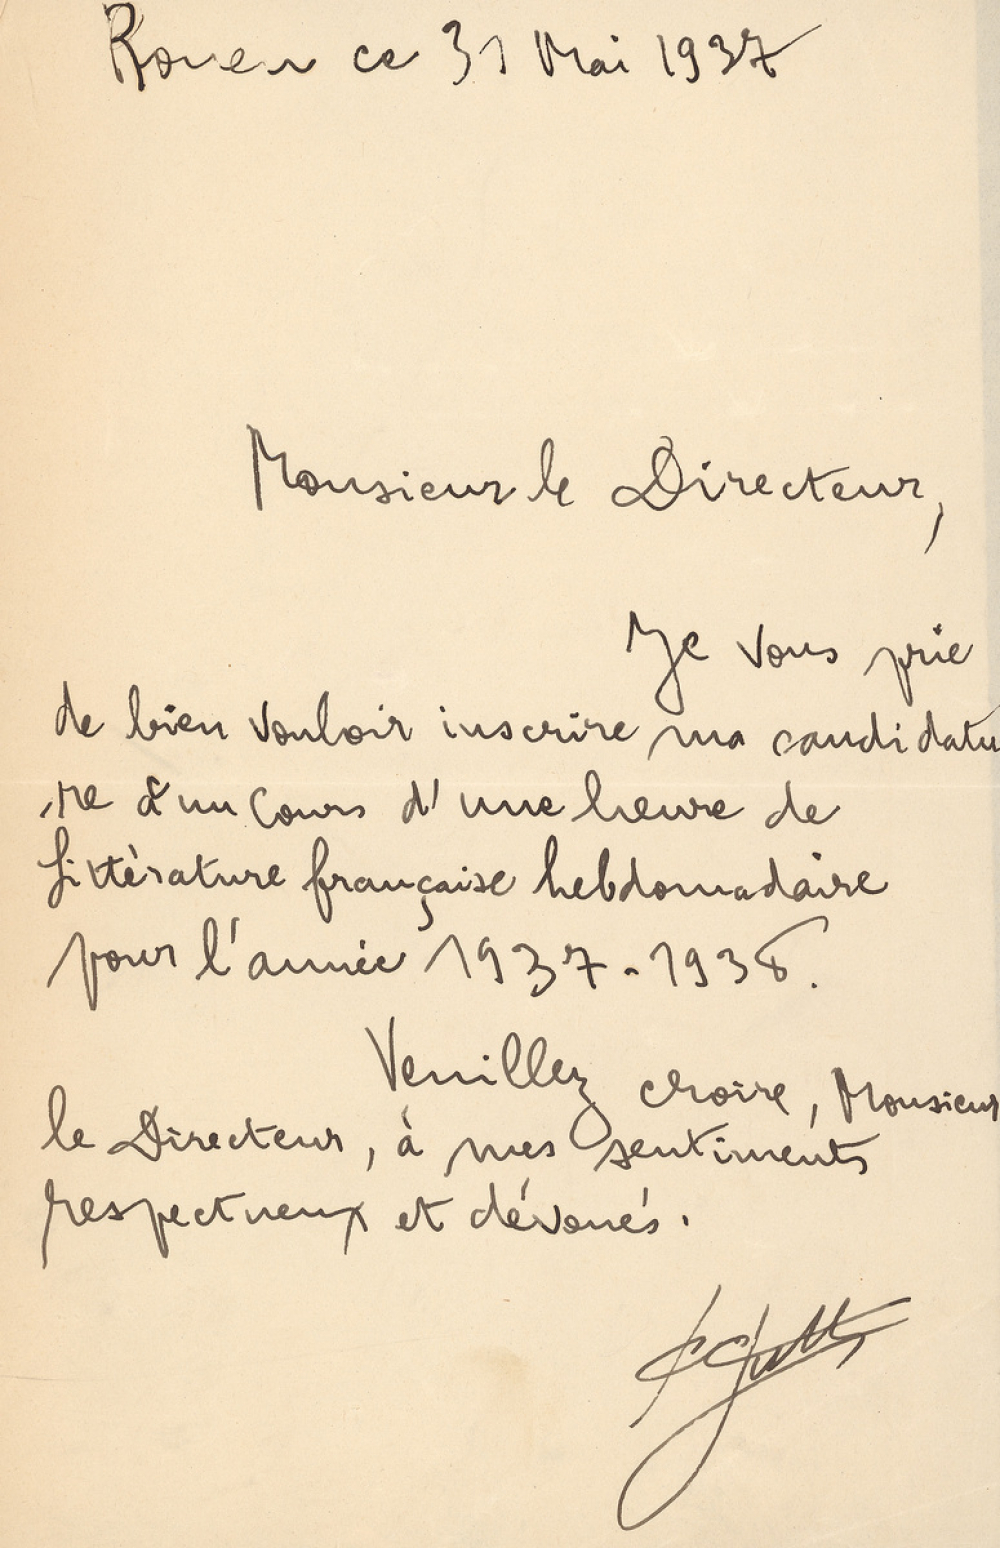 Rouen ce 31 Mai 1937
Monsieur le Directeur,
Je vous prie
de bien vouloir inscrire ma candidatu
re à un cours d'une heure de
littérature française hebdomadaire
pour l'année 1937-1938.
Veuillez croire, Monsieur
le Directeur, à mes sentiments
respectueux et dévoués.